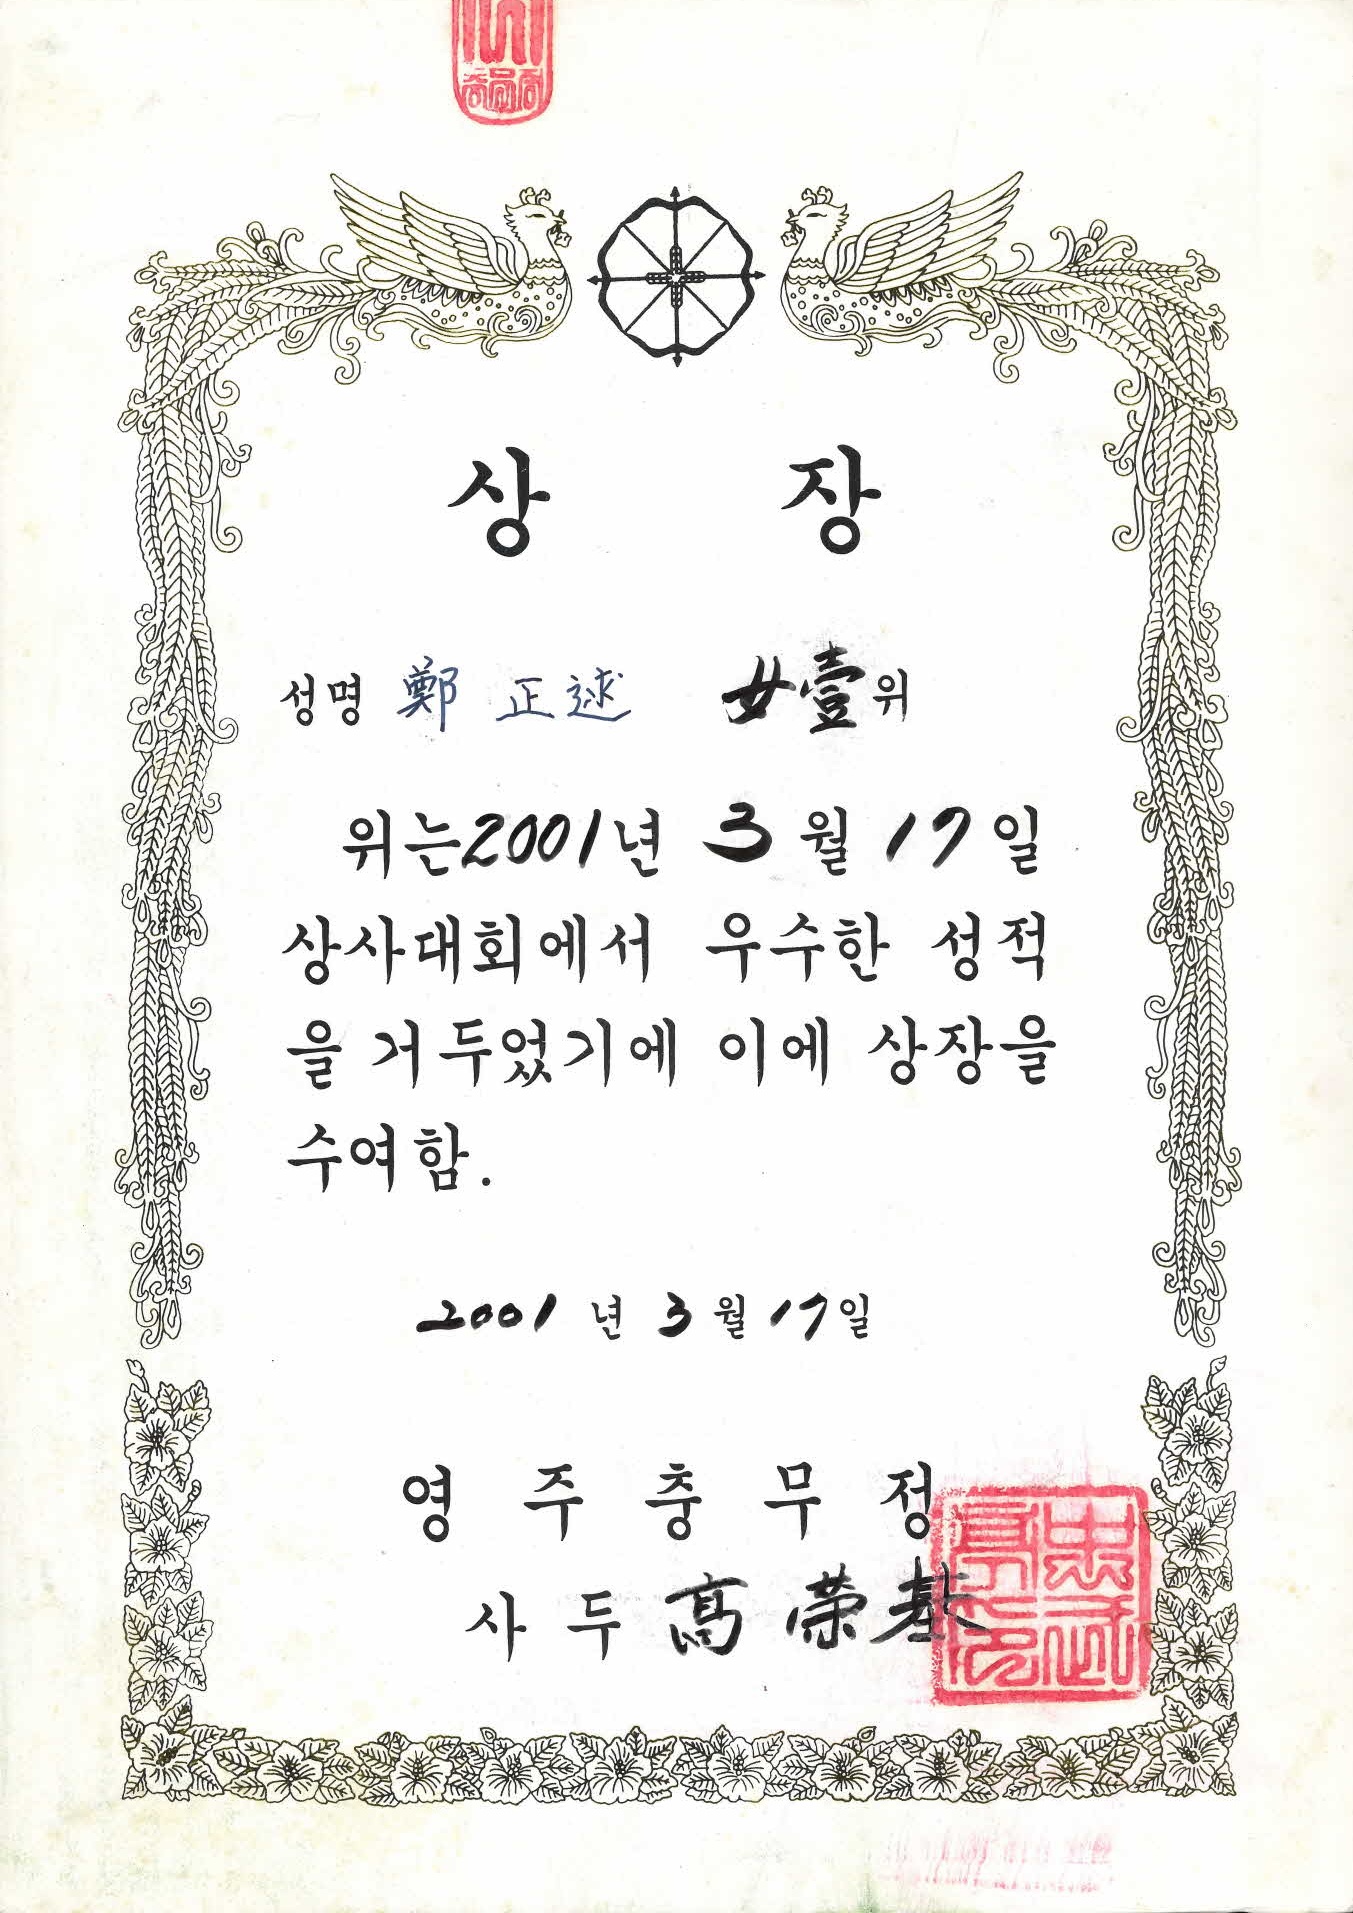 상 장
성명 鄭 正述 女壹위
위는2001년 3 월 17 일
상사대회에서 우수한 성적
을 거두었기에 이에 상장을
수여함.
2001 년 3 월 17일
영 주 충 무 정
사 두 高 榮 基
忠武亭印